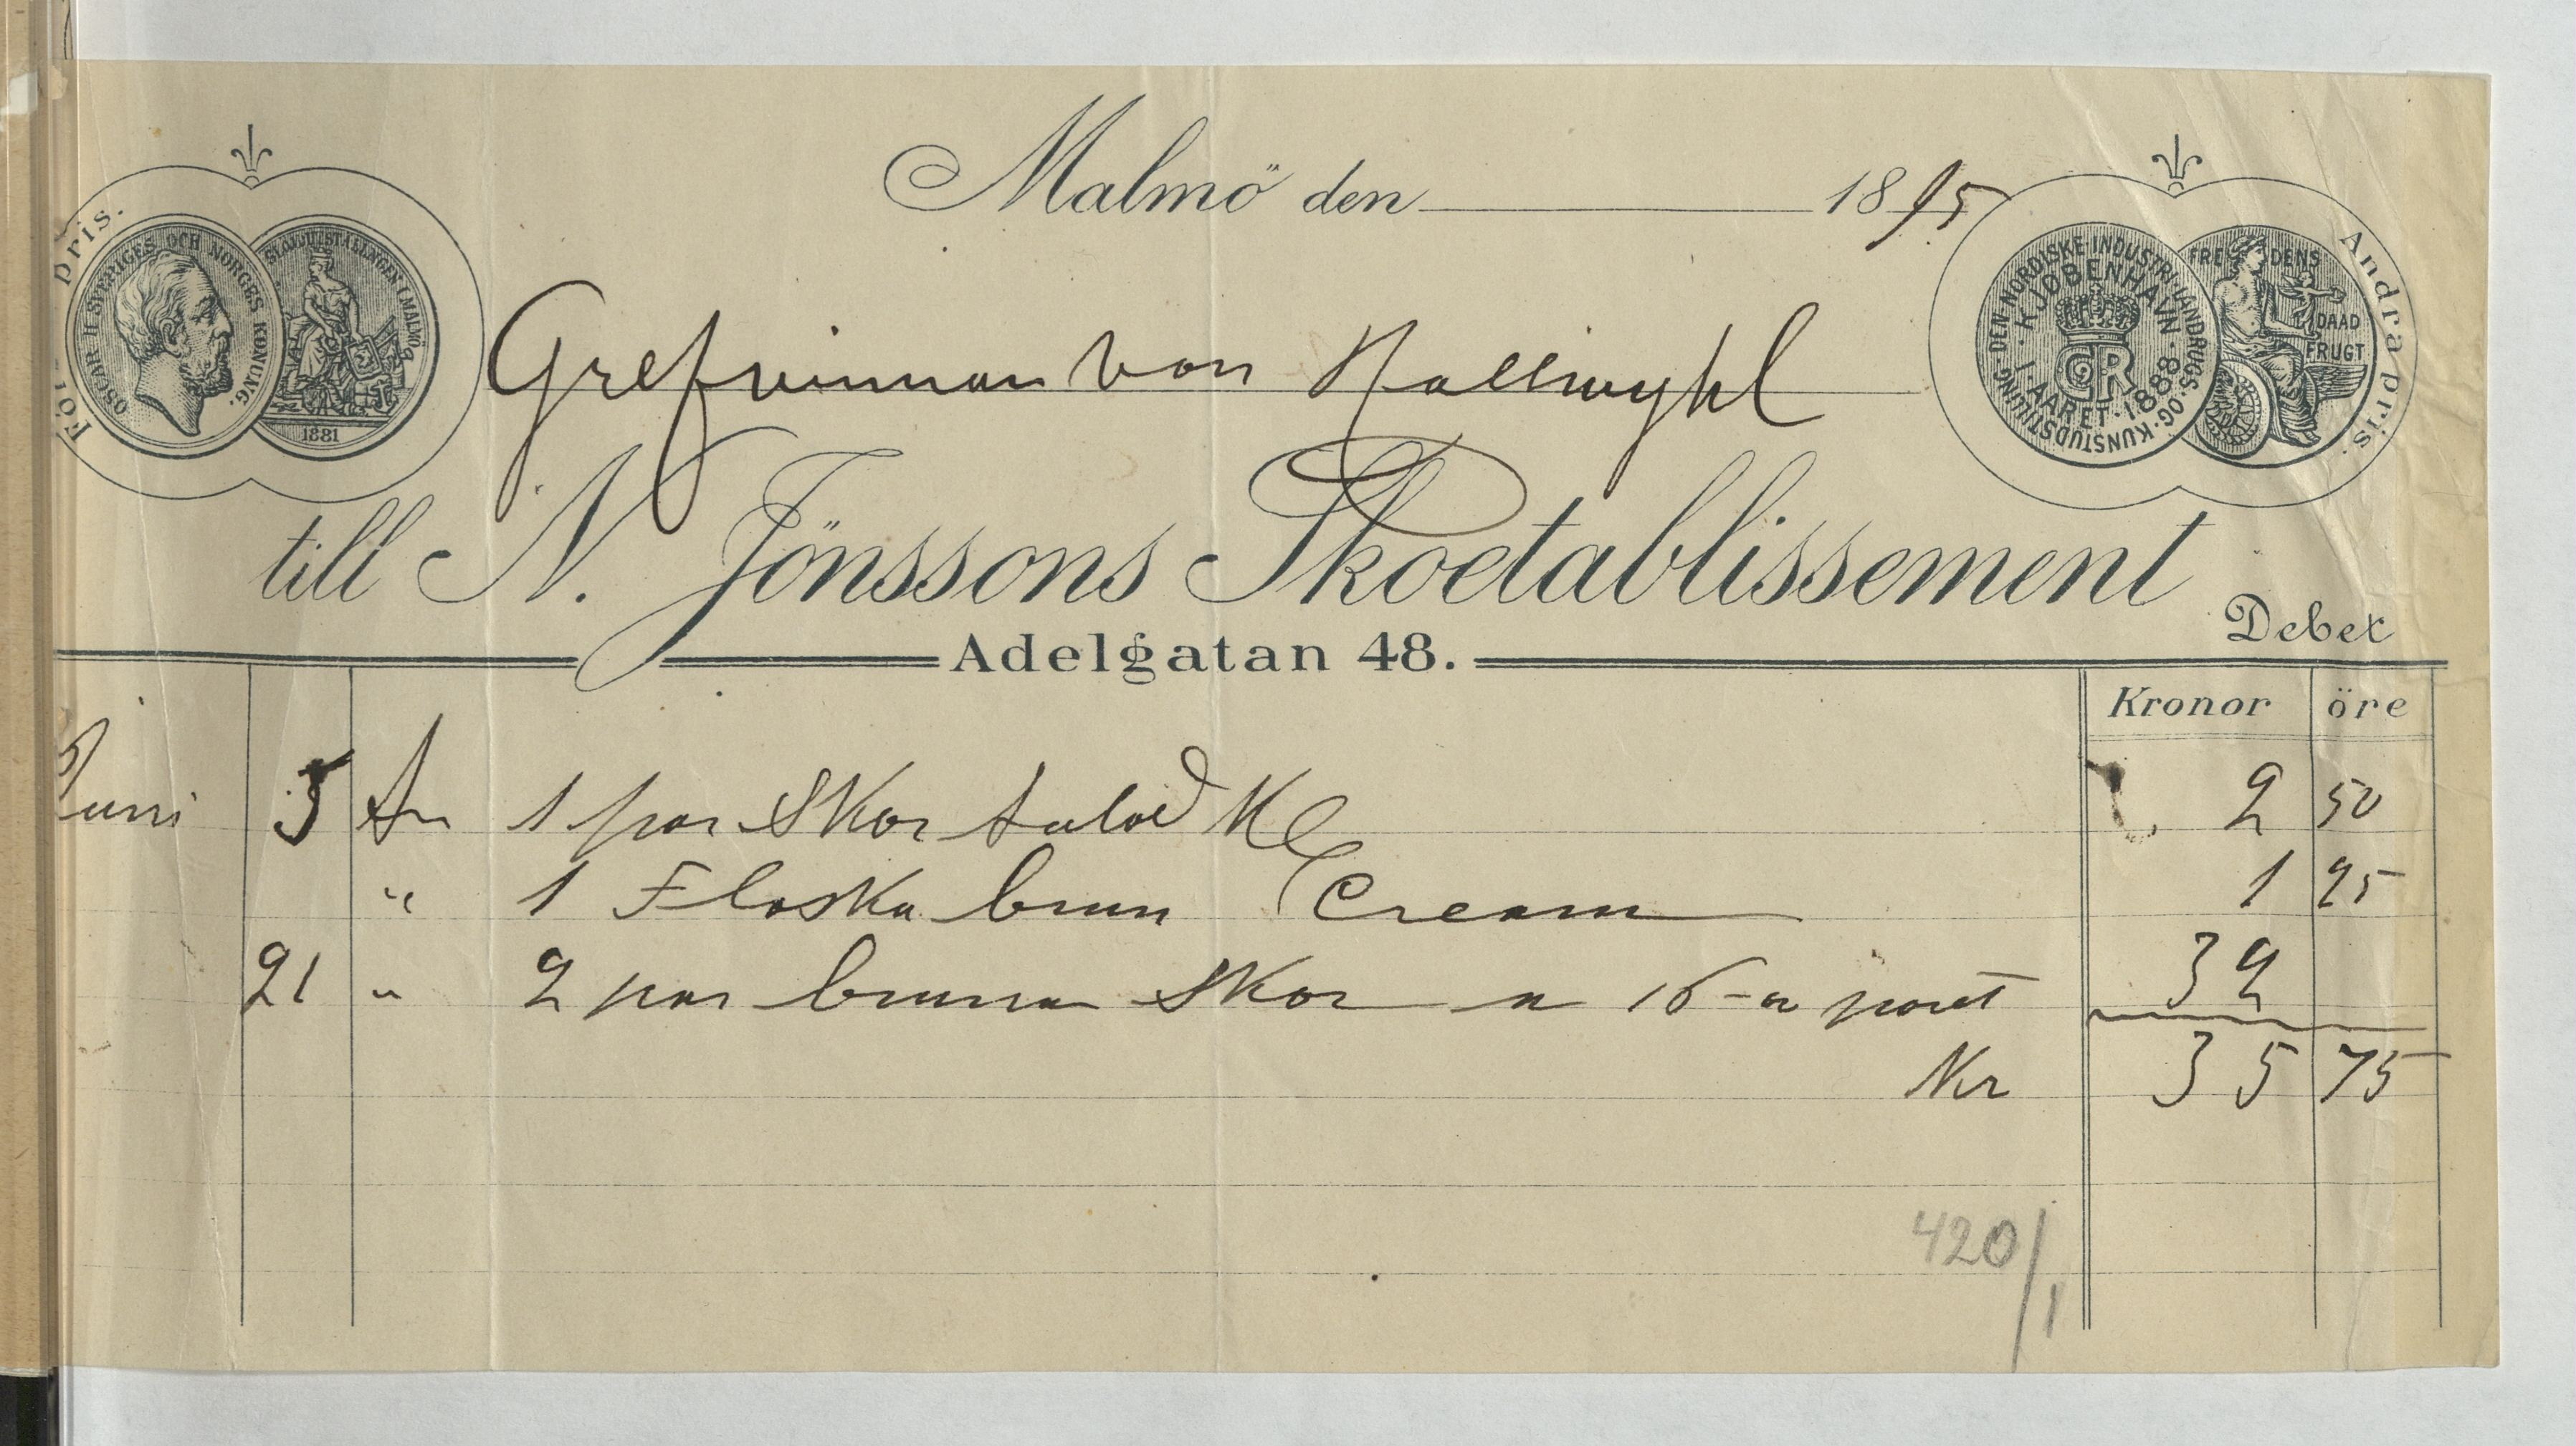 Malmö den 1895
Första pris.
OSCAR II SVERIGES OCH NORGES KONUNG.
SLÖJDUTSTÄLLNINGEN I MALMÖ
1881
DEN NORDISKE INDUSTRI-LANDBRUGS-OG-KUNSTUDSTILLING
I KJØBENHAVN
I AARET 1888
FREDENS DAAD
FRUGT
Andra pris.
Grefvinnan von Hallwyhl
till N. Jönssons Skoetablissement
Adelgatan 48.
Debet
Kronor öre
Juni 5 An 1 par Skor 2 50
" 1 Flaska brun Cream 1 25
21 " 2 par bruna Skor a 16 - a paret 32
Kr 35 75
420/1